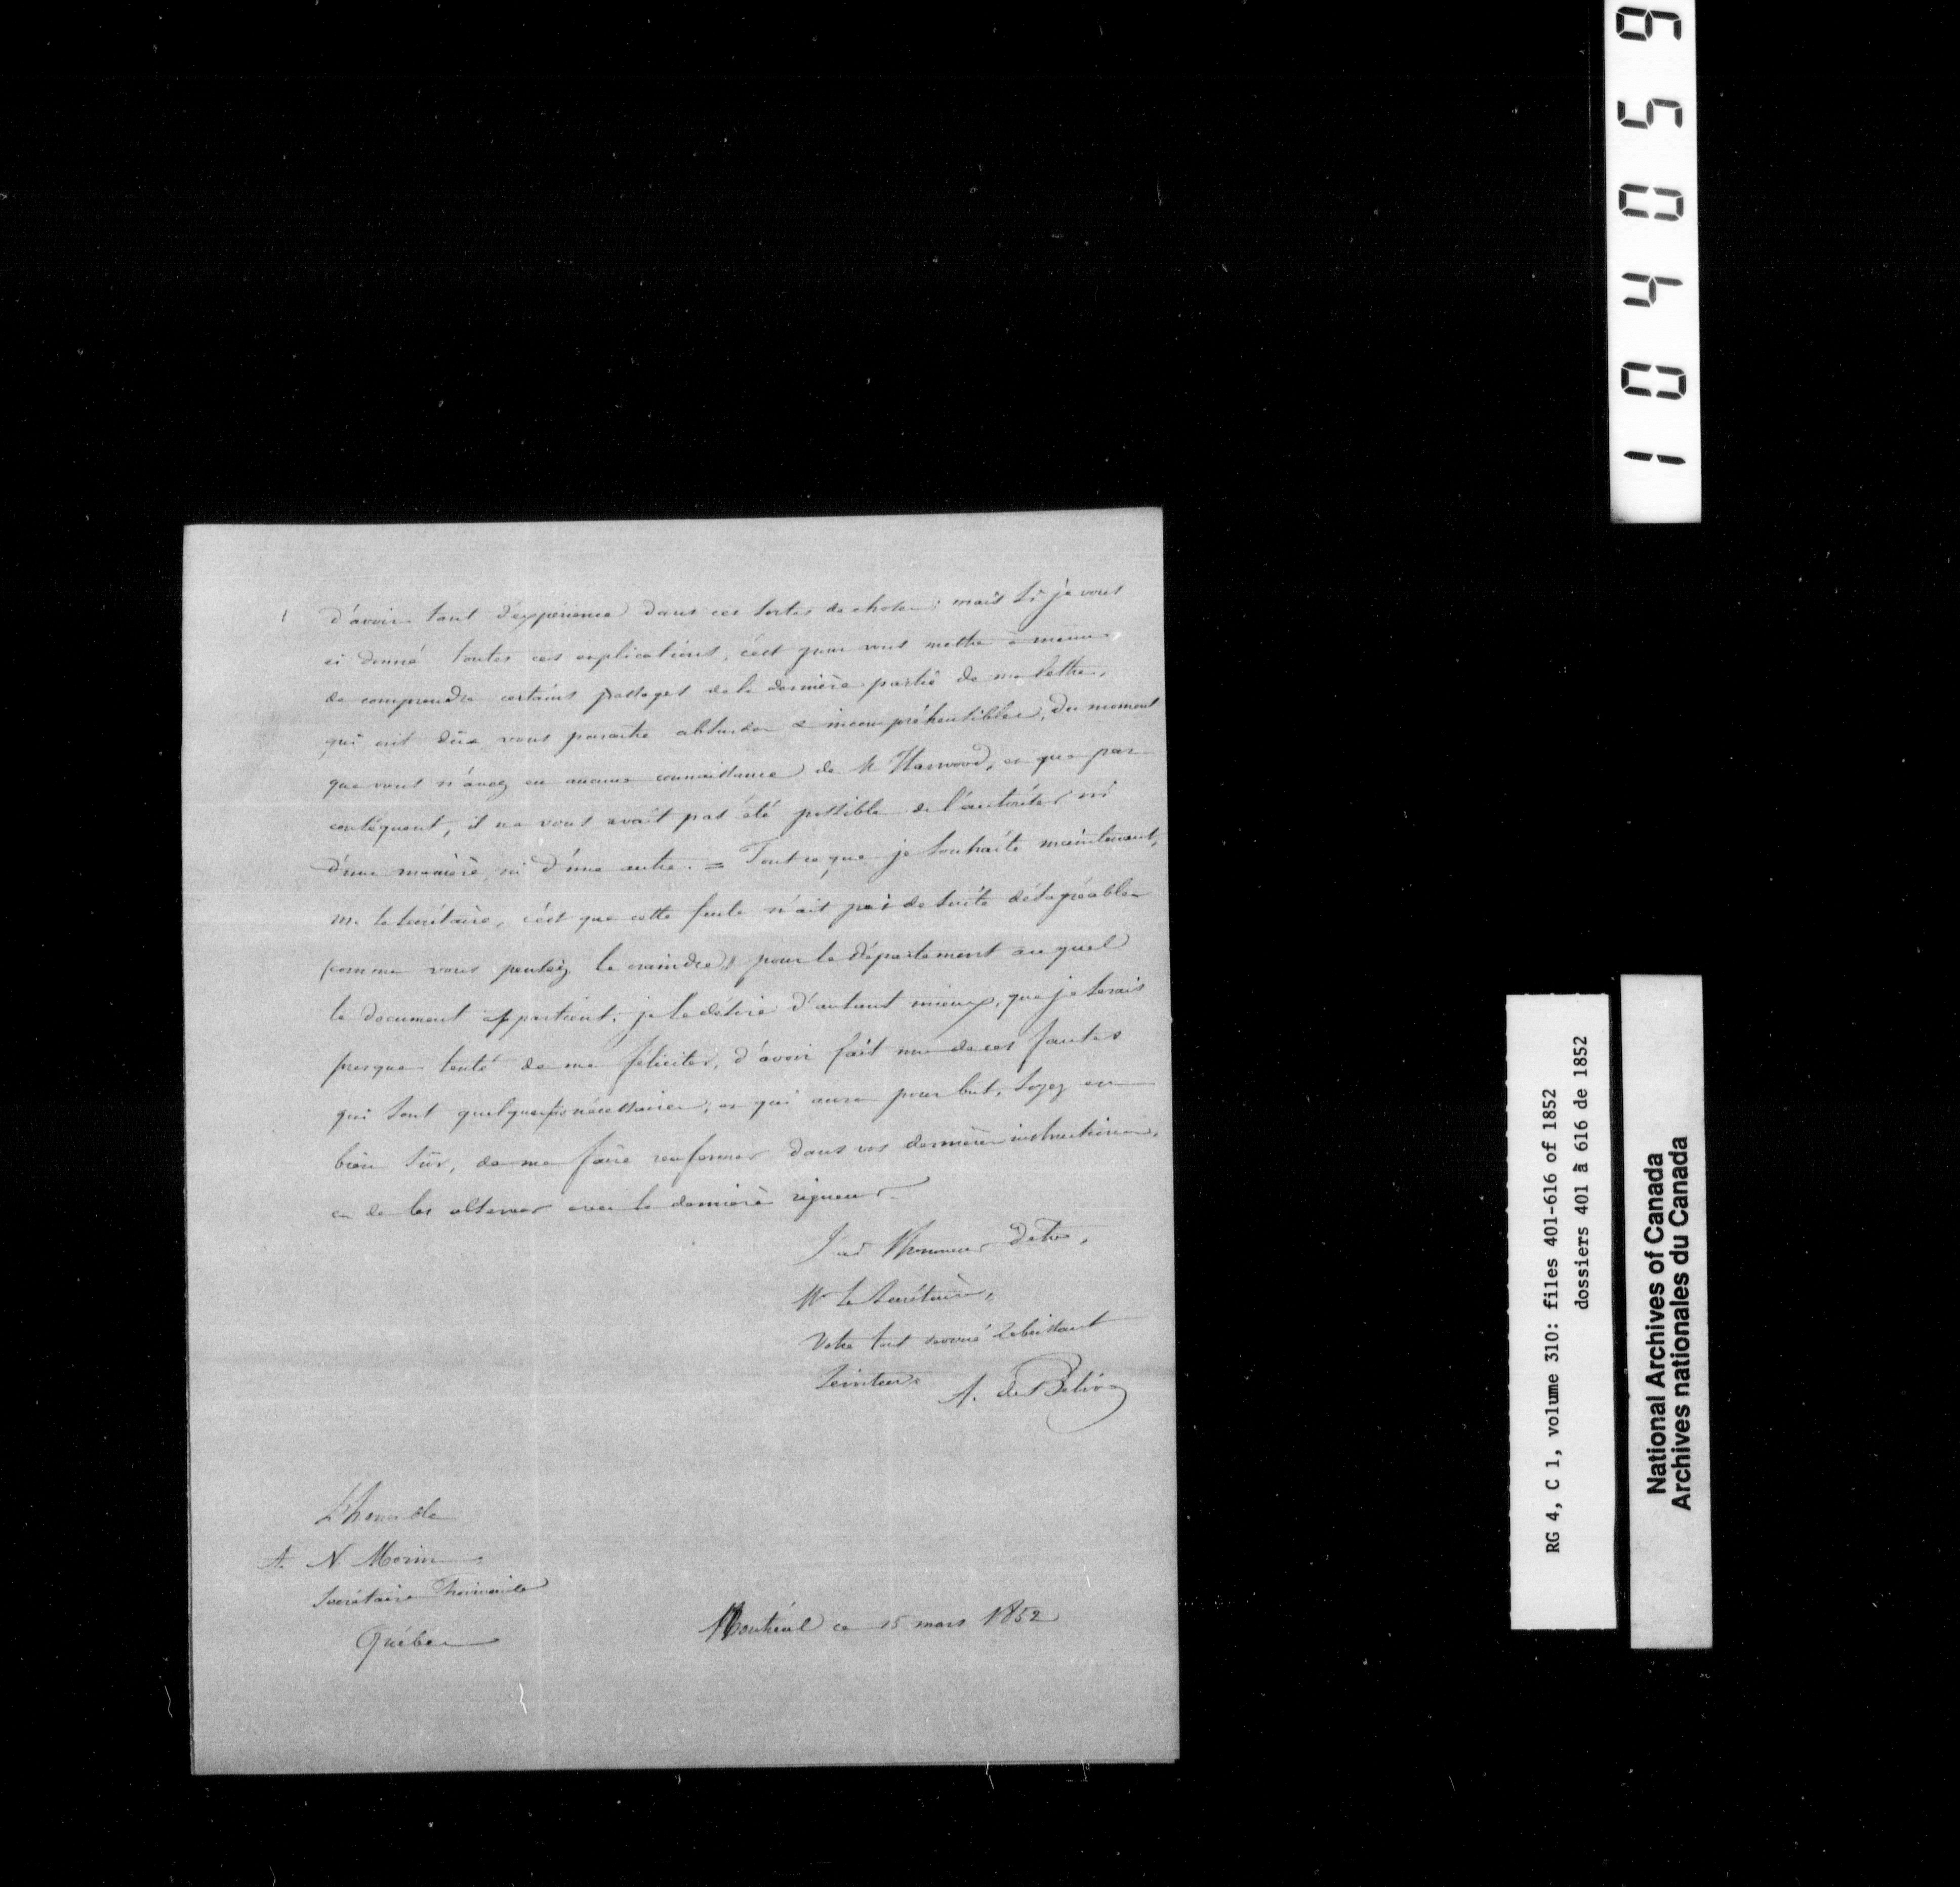 d'avoir tant d'expérience dans ces sortes de choses; mais si je vous
ai donné toutes ces explications, c'est pour vous mettre à même
de comprendre certains passages de la dernière partie de ma lettre,
qui ont dûe vous paraitre absurdes & incompréhensibles, du moment
que vous n'avez eu aucune connaissance de Mr Harwood, et que par
conséquent, il ne vous avait pas été possible de l'autoriser ni
d'une manière, ni d'une autre. = Tout ce que je souhaite maintenant,
M. le Secrétaire, c'est que cette faute n'ait pas de suite désagréable
(comme vous pensiez le craindre) pour le Département auquel
le document appartient; je le désire d'autant mieux, que je serais
presque tenté de me féliciter, d'avoir fait une de ces fautes
qui sont quelquefois nécessaires; et qui aura pour but, soyez en
bien sûr, de me faire renfermer dans vos dernières instructions,
et de les observer avec la dernière rigueur.
J'ai l'honneur d'etre,
Mr le Secrétaire,
Votre tout dévoué & obéissant
Serviteur
A. de
L'honorable
A. N. Morin
Secrétaire Provincial
Québec
Montréal ce 15 mars 1852
104059
RG 4, C 1, volume 310: files 401-616 of 1852
dossiers 401 à 616 de 1852
National Archives of Canada
Archives nationales du Canada